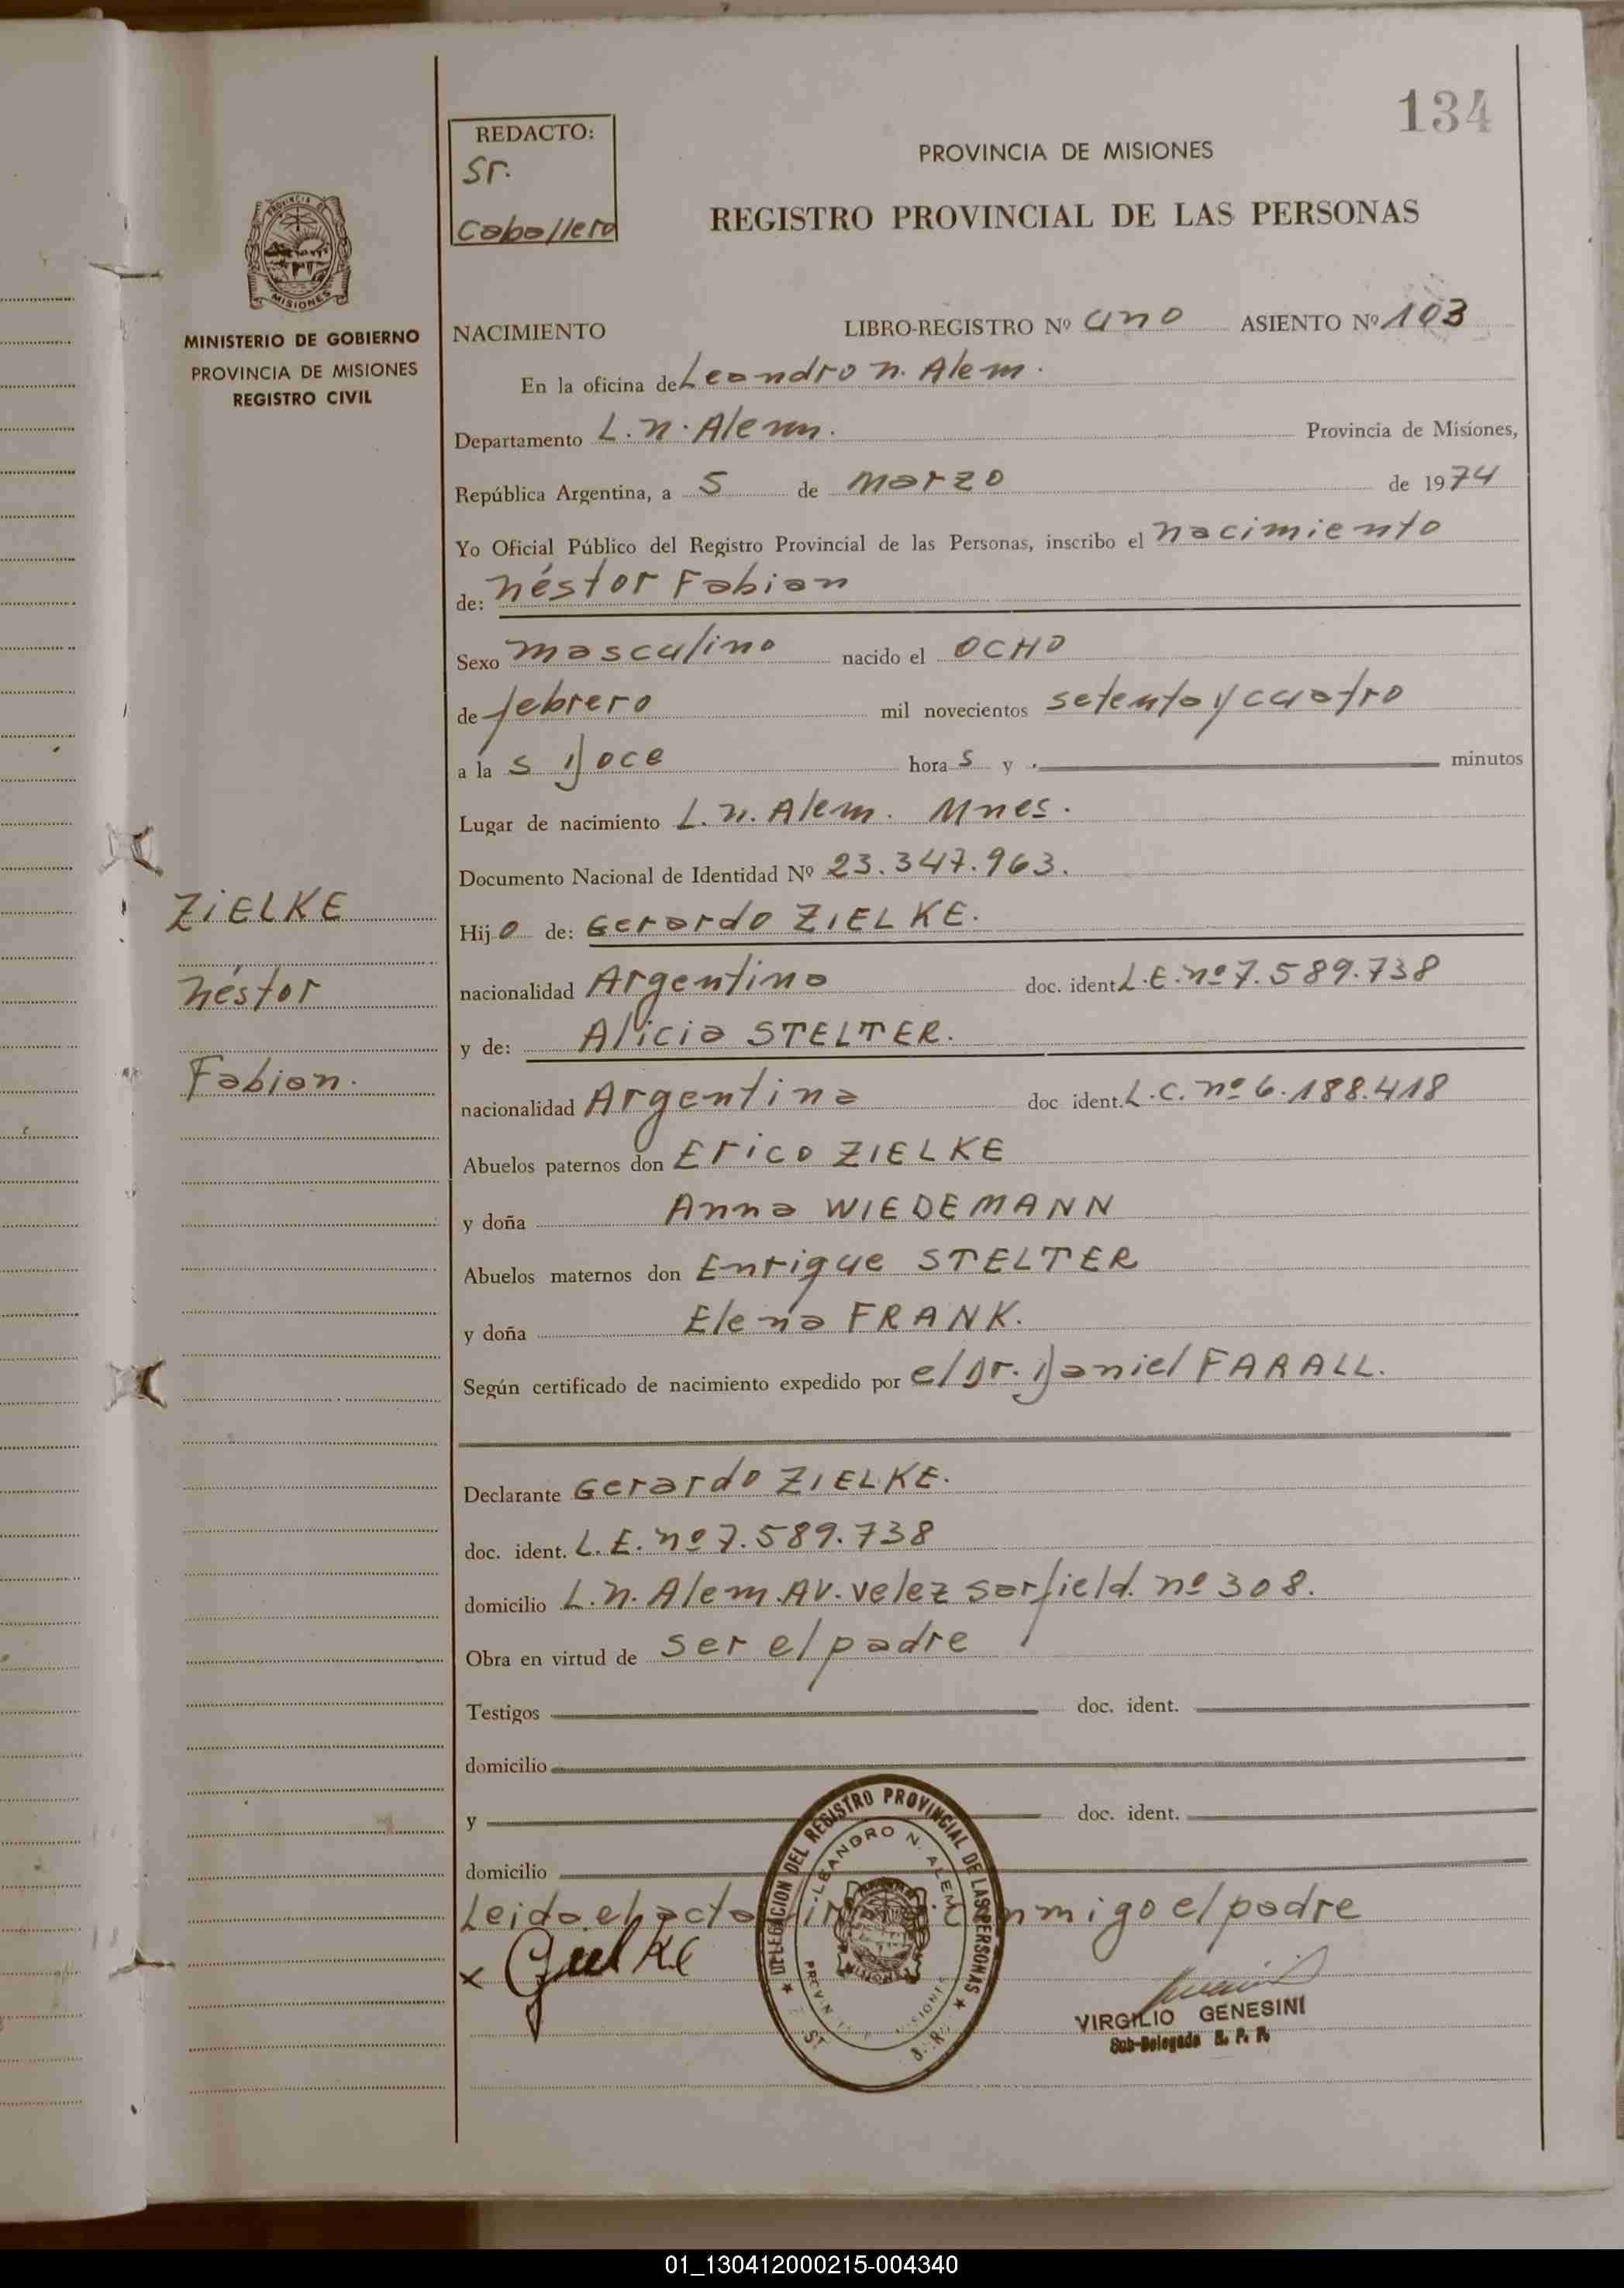 134
REDACTO:
Sr.
Caballero
PROVINCIA DE MISIONES
REGISTRO PROVINCIAL DE LAS PERSONAS
PROVINCIA DE
MISIONES
MINISTERIO DE GOBIERNO
PROVINCIA DE MISIONES
REGISTRO CIVIL
NACIMIENTO LIBRO-REGISTRO Nº uno ASIENTO Nº 103
En la oficina de Leandro n. Alem.
Departamento L. n. Alem. Provincia de Misiones,
República Argentina, a 5 de Marzo de 1974
Yo Oficial Público del Registro Provincial de las Personas, inscribo el nacimiento
de: Néstor Fabian
Sexo masculino nacido el OCHO
de febrero mil novecientos setenta y cuatro
a la s Doce hora s y . minutos
Lugar de nacimiento L. n. Alem. Mnes.
Documento Nacional de Identidad Nº 23.347.963.
ZiELKE
Néstor
Fabian.
Hij o de: Gerardo ZIELKE.
nacionalidad Argentino doc. ident L.E. nº 7.589.738
y de: Alicia STELTER.
nacionalidad Argentina doc ident. L.C. nº 6.188.418
Abuelos paternos don Erico ZIELKE
y doña Anna WIEDEMANN
Abuelos maternos don Enrique STELTER
y doña Elena FRANK.
Según certificado de nacimiento expedido por el Dr. Daniel FARALL.
Declarante Gerardo ZIELKE.
doc. ident. L.E. nº 7.589.738
domicilio L. n. Alem. AV. velez sarfield. nº 308.
Obra en virtud de ser el padre
Testigos doc. ident.
domicilio
y doc. ident.
domicilio
Leido el acto nmigo el padre
x
DELEGACION DEL REGISTRO PROVINCIAL DE LAS PERSONAS
LEANDRO N. ALEM
VIRGILIO GENESINI
Sub-Delegado R. P. P.
01_130412000215-004340